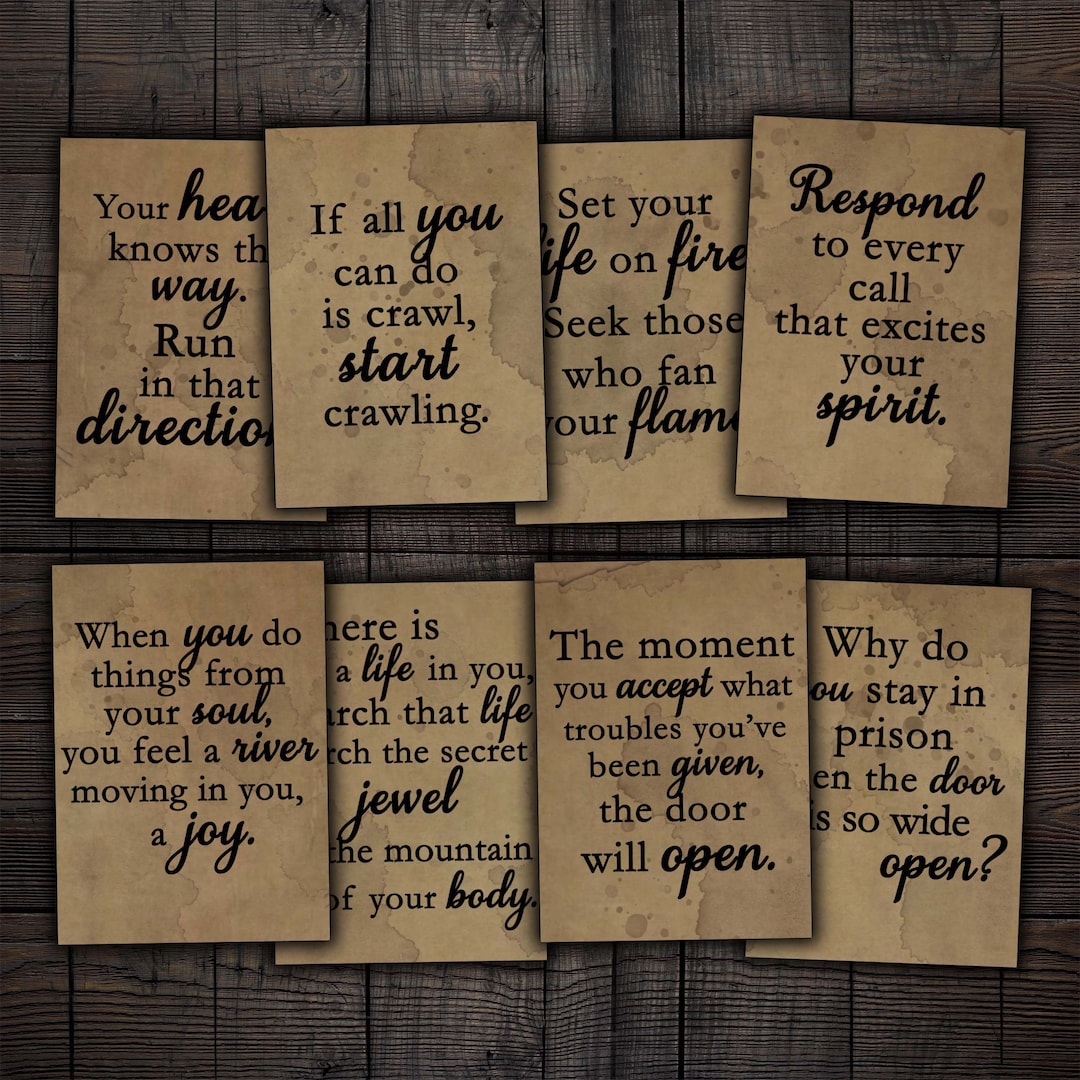 Your hea
knows th
way.
Run
in that
directio
If all you
can do
is crawl,
start
crawling.
Set your
life on fire
Seek those
who fan
your flame
Respond
to every
call
that excites
your
spirit.
When you do
things from
your soul,
you feel a river
moving in you,
a joy.
here is
a life in you,
arch that life
rch the secret
jewel
the mountain
of your body.
The moment
you accept what
troubles you've
been given,
the door
will open.
Why do
ou stay in
prison
en the door
is so wide
open?